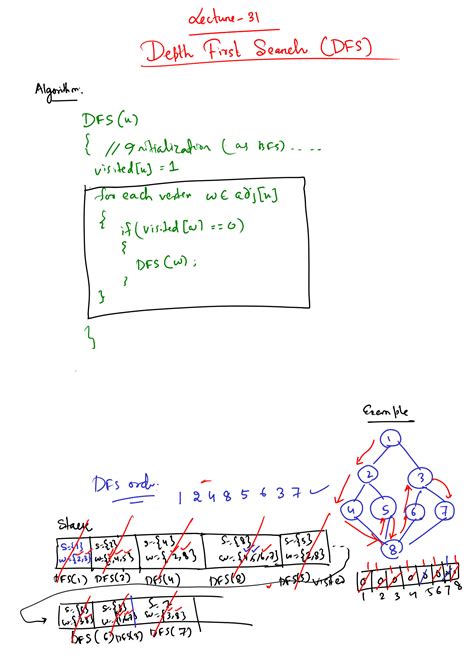 Lecture-31
Depth First Search (DFS)
Algorithm.
DFS(u)
{ // Initialization (as BFS) ....
visited[u] = 1
for each vertex w ∈ adj[u]
{
if (visited [w] == 0)
{
DFS(w);
}
}
}
Example
1
2 3
4 5 6 7
8
DFS order. 1 2 4 8 5 6 3 7 ✓
Stack
S={1} S={2} S={4} S={8} S={5}
W={2,3} W={1,4,5} W={2,8} W={4,5,6,7} W={2,8}
DFS(1) DFS(2) DFS(4) DFS(8) DFS(5) visited
0 0 0 0 0 0 0 0
1 2 3 4 5 6 7 8
W={3,8} W={3,8}
DFS(6) DFS(3) DFS(7)